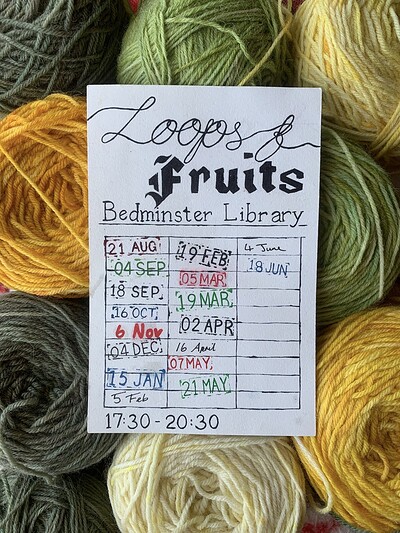 Loops &
Fruits
Bedminster Library
21 AUG
04 SEP
18 SEP
16 OCT
6 Nov
04 DEC
15 JAN
5 Feb
19 FEB
05 MAR
19 MAR
02 APR
16 April
07 MAY
21 MAY
4 June
18 JUN
17:30-20:30